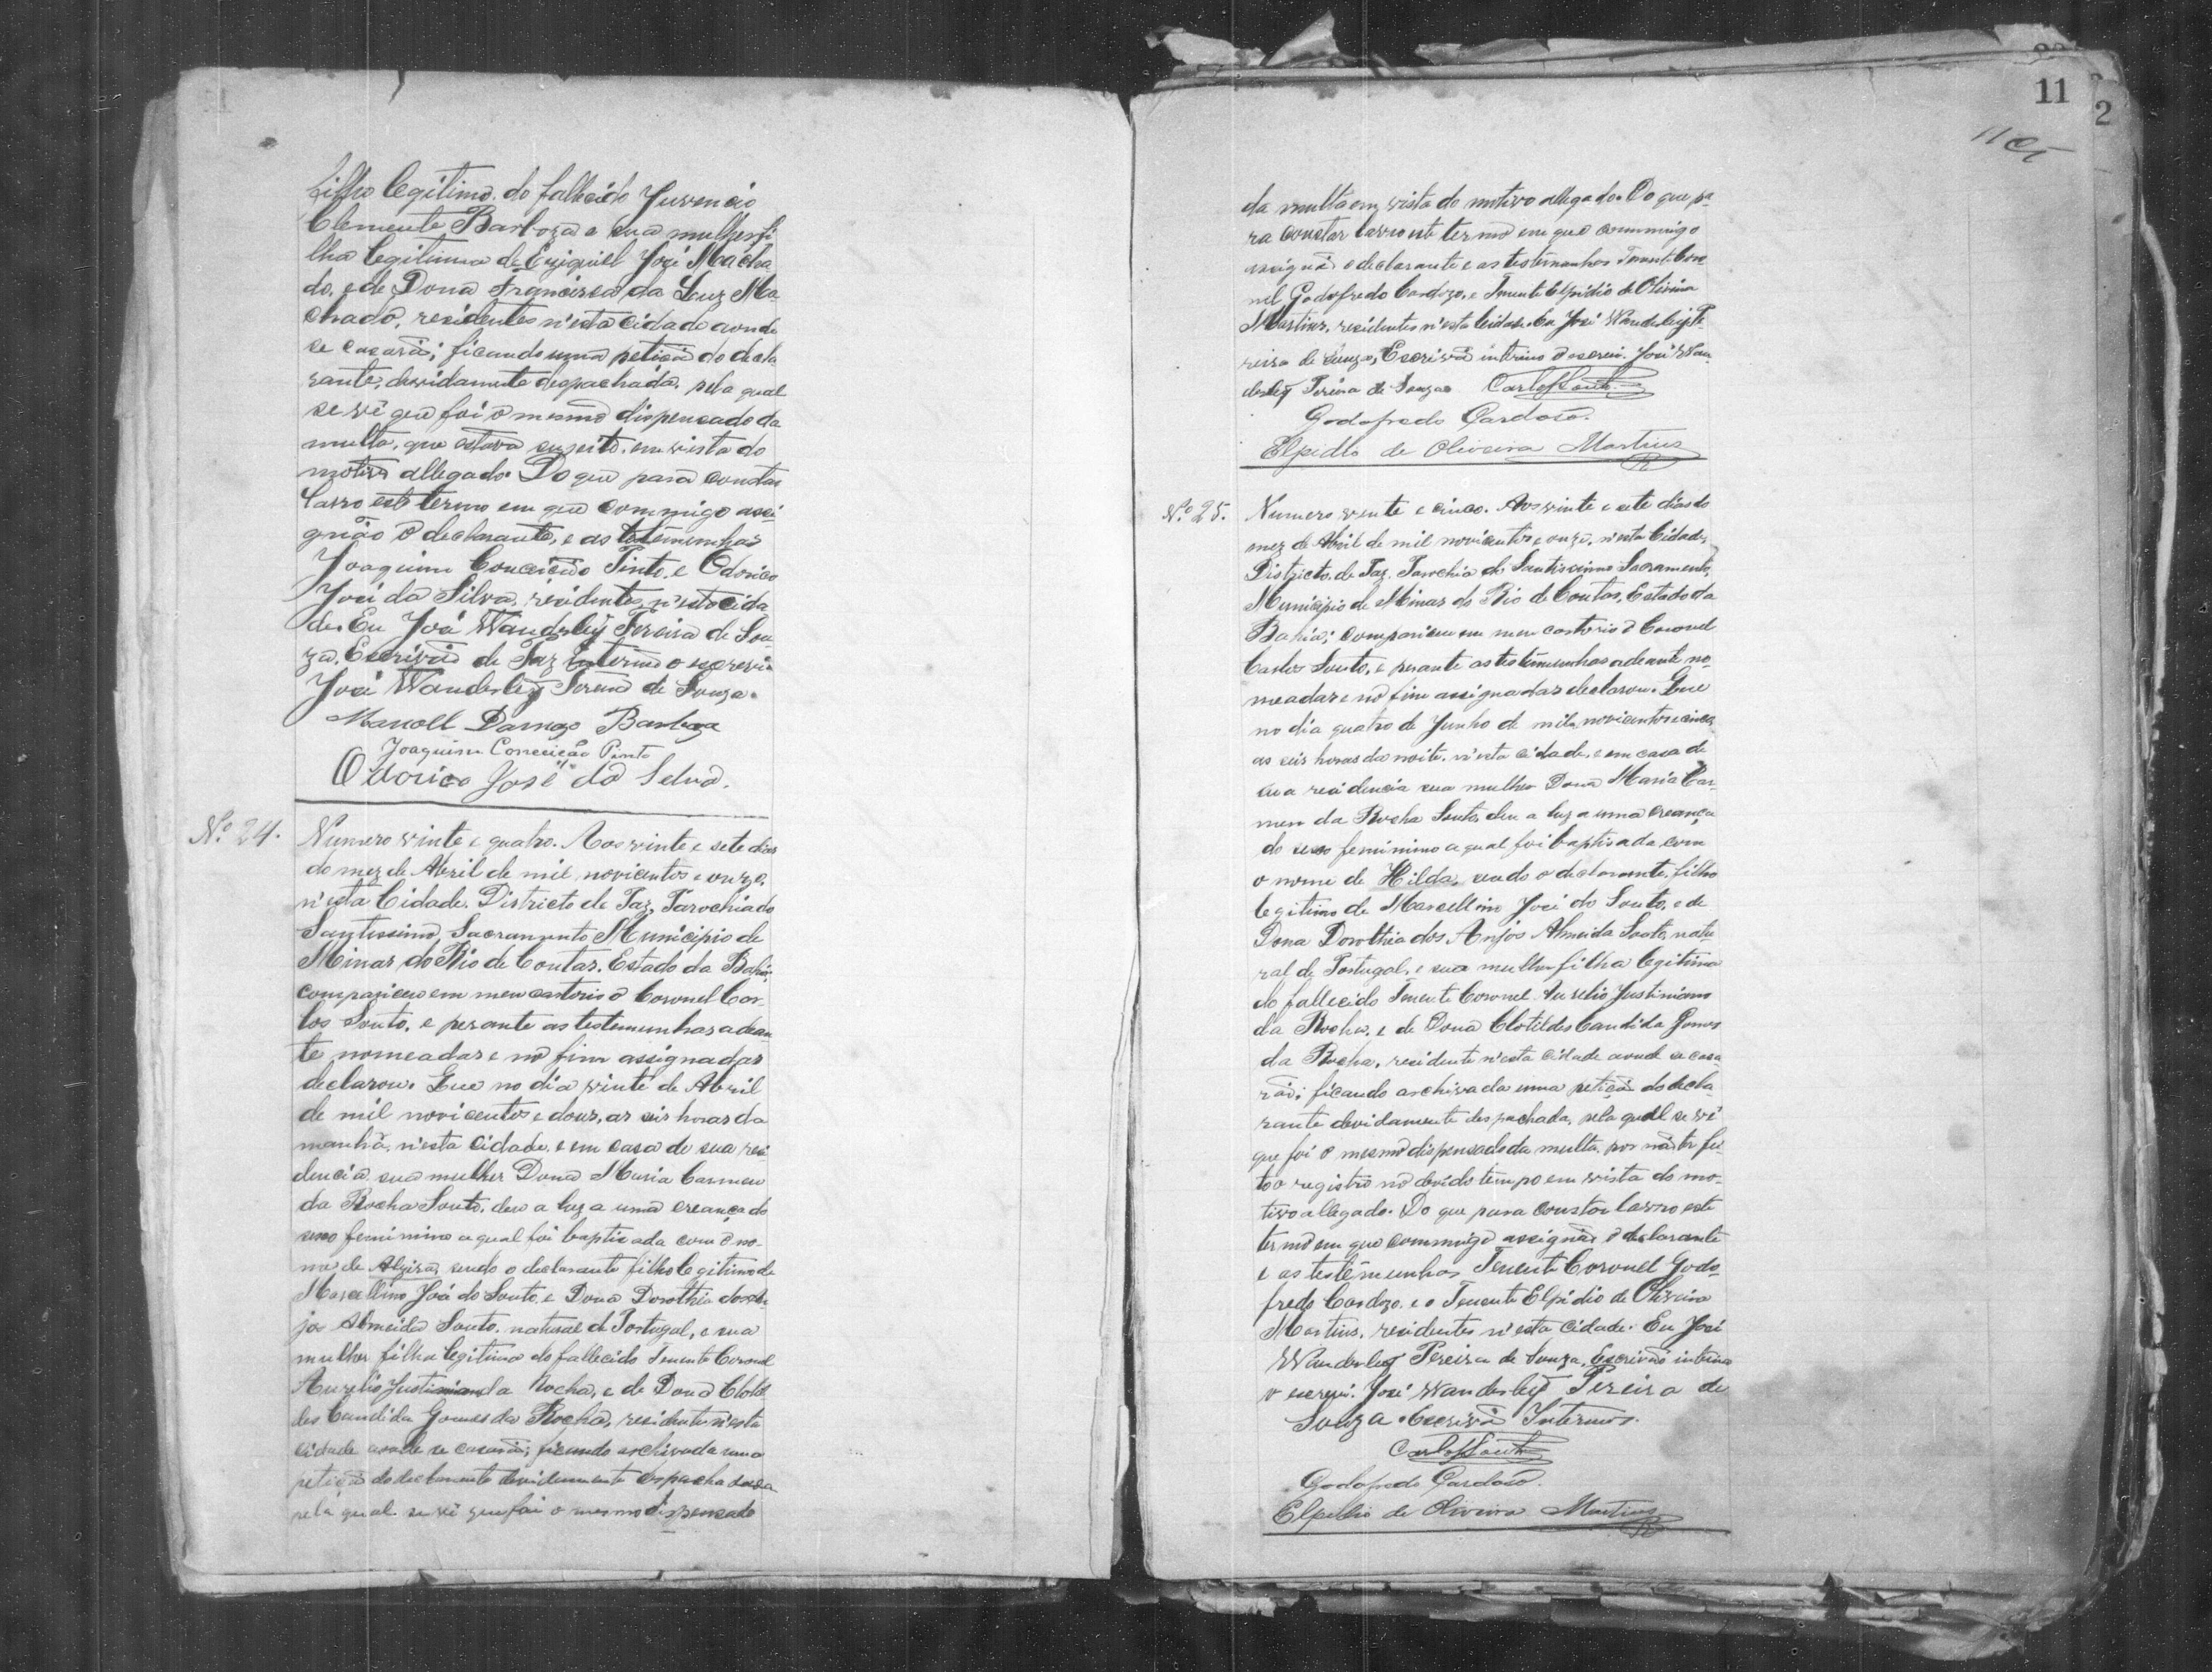 Filho legitimo do fallecido Juvencio
Clemente Barboza e sua mulher fi
lha legitima de Eziquiel José Macha
do, e de Dona Francisca da Luz Ma
chado, residentes n'esta cidade aonde
se casarão; ficando uma petição do decla
rante, devidamente despachada, pela qual
se vê que foi o mesmo dispensado da
multa, que estava sugeito, em vista do
motivo allegado. Do que para constar
lavro este termo em que commigo assi
gnão o declarante, e as testemunhas
Joaquim Conceicão Pinto, e Odorico
José da Silva, residentes n'esta cida
de. Eu José Wanderley Pereira de Sou
za, Escrivão de Paz interino o escrevi
José Wanderley Pereira de Souza.
Manoell Barboza
Joaquim Conceição Pinto
Odorico José da Selva.
No. 24.
Numero vinte e quatro. Aos vinte e sete dias
do mez de Abril de mil novicentos e onze,
n'esta Cidade, Districto de Paz, Parochia do
Santissimo Sacramento Municipio de
Minas do Rio de Contas, Estado da Bahia,
compariceu em meu cartorio o Coronel Car
los Souto, e perante as testemunhas adean
te nomeadas e no fim assignadas
declarou. Que no dia vinte de Abril
de mil novicentos e dous, as seis horas da
manhã, n'esta cidade, e em casa de sua resi
dencia sua mulher Dona Maria Carmen
da Rocha Souto, deu a luz a uma creança do
sexo feminino a qual foi baptisada com o no-
me de Alzira, sendo o declarante filho legitimo de
Marcellino José do Souto, e Dona Dorothia dos An
jos Almeida Souto, natural de Portugal, e sua
mulher filha legitima do fallecido Tenente Coronel
Aurelio Justiniano da Rocha, e de Dona Clotil
des Candida Gomes da Rocha, residente n'esta
cidade aonde se casarão; ficando archivada uma
petição do declarante devidamente despachada
pela qual se vê que foi o mesmo dispensado
11
2
da multa em vista do motivo allegado. Do que pa-
ra constar lavro este termo em que commigo
assignão o declarante e as testemunhas Tenente Coro
nel Godofredo Cardozo, e Tenente Elpidio de Oliveira
Martins, residentes n'esta Cidade. Eu José Wanderley Pe
reira de Souza, Escrivão interino o escrevi. José Wan
derley Pereira de Souza Carlos Souto
Godofredo Cardoso.
Elpidio de Oliveira Martins
No. 25.
Numero vinte e cinco. Aos vinte e sete dias do
mez de Abril de mil novicentos e onze, n'esta Cidade,
Districto de Paz, Parochia do Santissimo Sacramento,
Municipio de Minas do Rio de Contas, Estado da
Bahia; compariceu em meu cartorio o Coronel
Carlos Souto, e perante as testemunhas adeante no-
meadas e no fim assignadas declarou. Que
no dia quatro de Junho de mil novicentos e cinco,
as seis horas da noite, n'esta cidade, e em casa de
sua residencia sua mulher Dona Maria Car-
men da Rocha Souto, deu a luz a uma creança
do sexo feminino a qual foi baptisada com
o nome de Hilda, sendo o declarante, filho
legitimo de Marcellino José do Souto, e de
Dona Dorothia dos Anjos Almeida Souto, natu
ral de Portugal, e sua mulher filha legitima
do fallecido Tenente Coronel Aurelio Justiniano
da Rocha, e de Dona Clotildes Candida Gomes
da Rocha, residente n'esta cidade aonde se casa
rão; ficando archivada uma petição do decla-
rante devidamente despachada, pela qual se vê
que foi o mesmo dispensado da multa, por não ter fei-
to o registro no devido tempo em vista do mo-
tivo allegado. Do que para constar lavro este
termo em que commigo assignão o declarante
e as testemunhas Tenente Coronel Godo-
fredo Cardozo, e o Tenente Elpidio de Oliveira
Martins, residentes n'esta cidade. Eu José
Wanderley Pereira de Souza, Escrivão interino
o escrevi. José Wanderley Pereira de
Souza Escrivão Interino.
Carlos Souto
Godofredo Cardoso.
Elpidio de Oliveira Martins